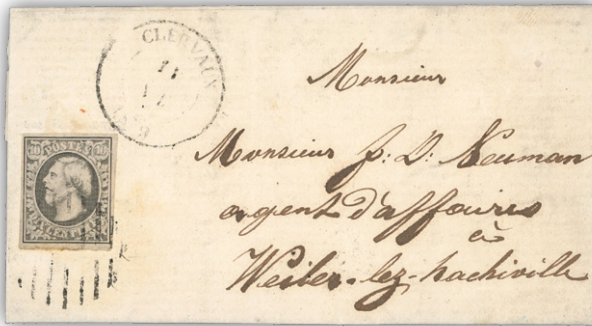 CLERVAUX
11
Monsieur
10 POSTES 10
Monsieur J: P: Neuman
agent d'affaires
à
Weiler-lez-hachiville